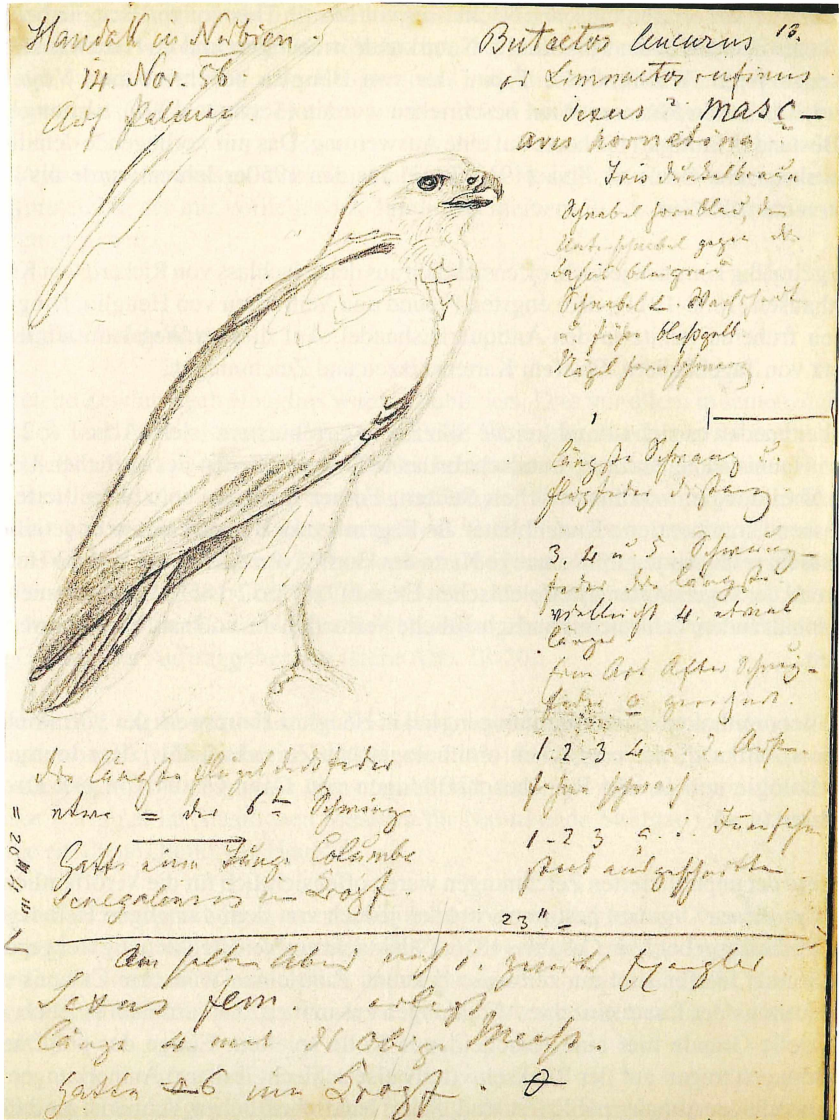 Handak in Nubien.
14. Nov. 56
Auf Palmen.
13.
Butaetos leucurus
od Limnaetos rufinus
Sexus? masc
avis hornotina
Iris dunkelbraun
Schnabel hornblau der
Unterschnabel gegen die
basis blaugrau
Schnabel Wachshaut
u Füße blaßgelb
Nägel hornschwarz
längste Schwanz u.
Flügfeder distanz
3. 4 u 5. Schwung-
feder die längste.
vielleicht 4 etwas
länger
Eine Art After Schwung-
feder o gerechnet.
1 2 3 4 u 5 Außen-
fahne schwach
1-2 3 Innenfahn
stark ausgeschnitten
die längste Flügeldeckfeder
etwa = der 6t Schwing
Hatte eine Junge Columba
Senegalensis im Kropf
= 20" 4'''
23"
Am selben Abend noch e. zweites Exemplar
Sexus fem erlegt
Länge 4 mal die obige Meess.
Hatte im Kropf.